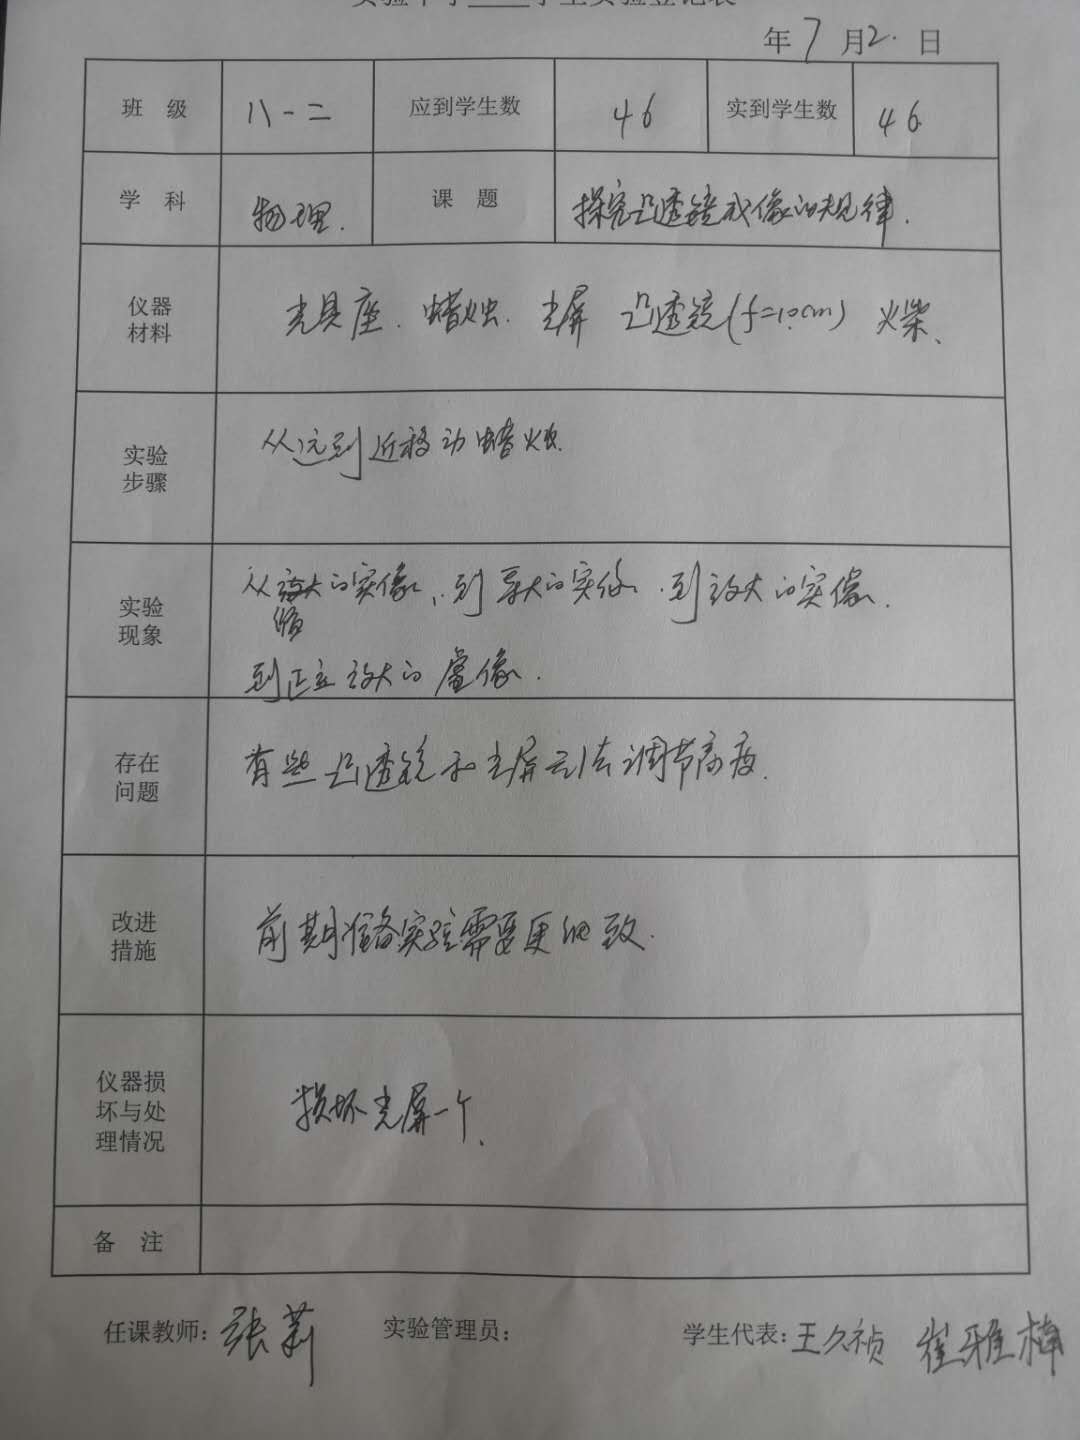 实验中学____学生实验登记表
年7月2.日
班 级 八-二 应到学生数 46 实到学生数 46
学 科 物理. 课 题 探究凸透镜成像的规律.
仪器材料 光具座.蜡烛.光屏 凸透镜(f=10cm) 火柴、
实验步骤 从远到近移动蜡烛.
实验现象 从缩小的实像、到等大的实像.到放大的实像.
到正立放大的虚像.
存在问题 有些凸透镜和光屏无法调节高度.
改进措施 前期准备实验需要更细致.
仪器损坏与处理情况 损坏光屏一个、
备 注
任课教师：张莉 实验管理员： 学生代表：王久祯 崔雅楠